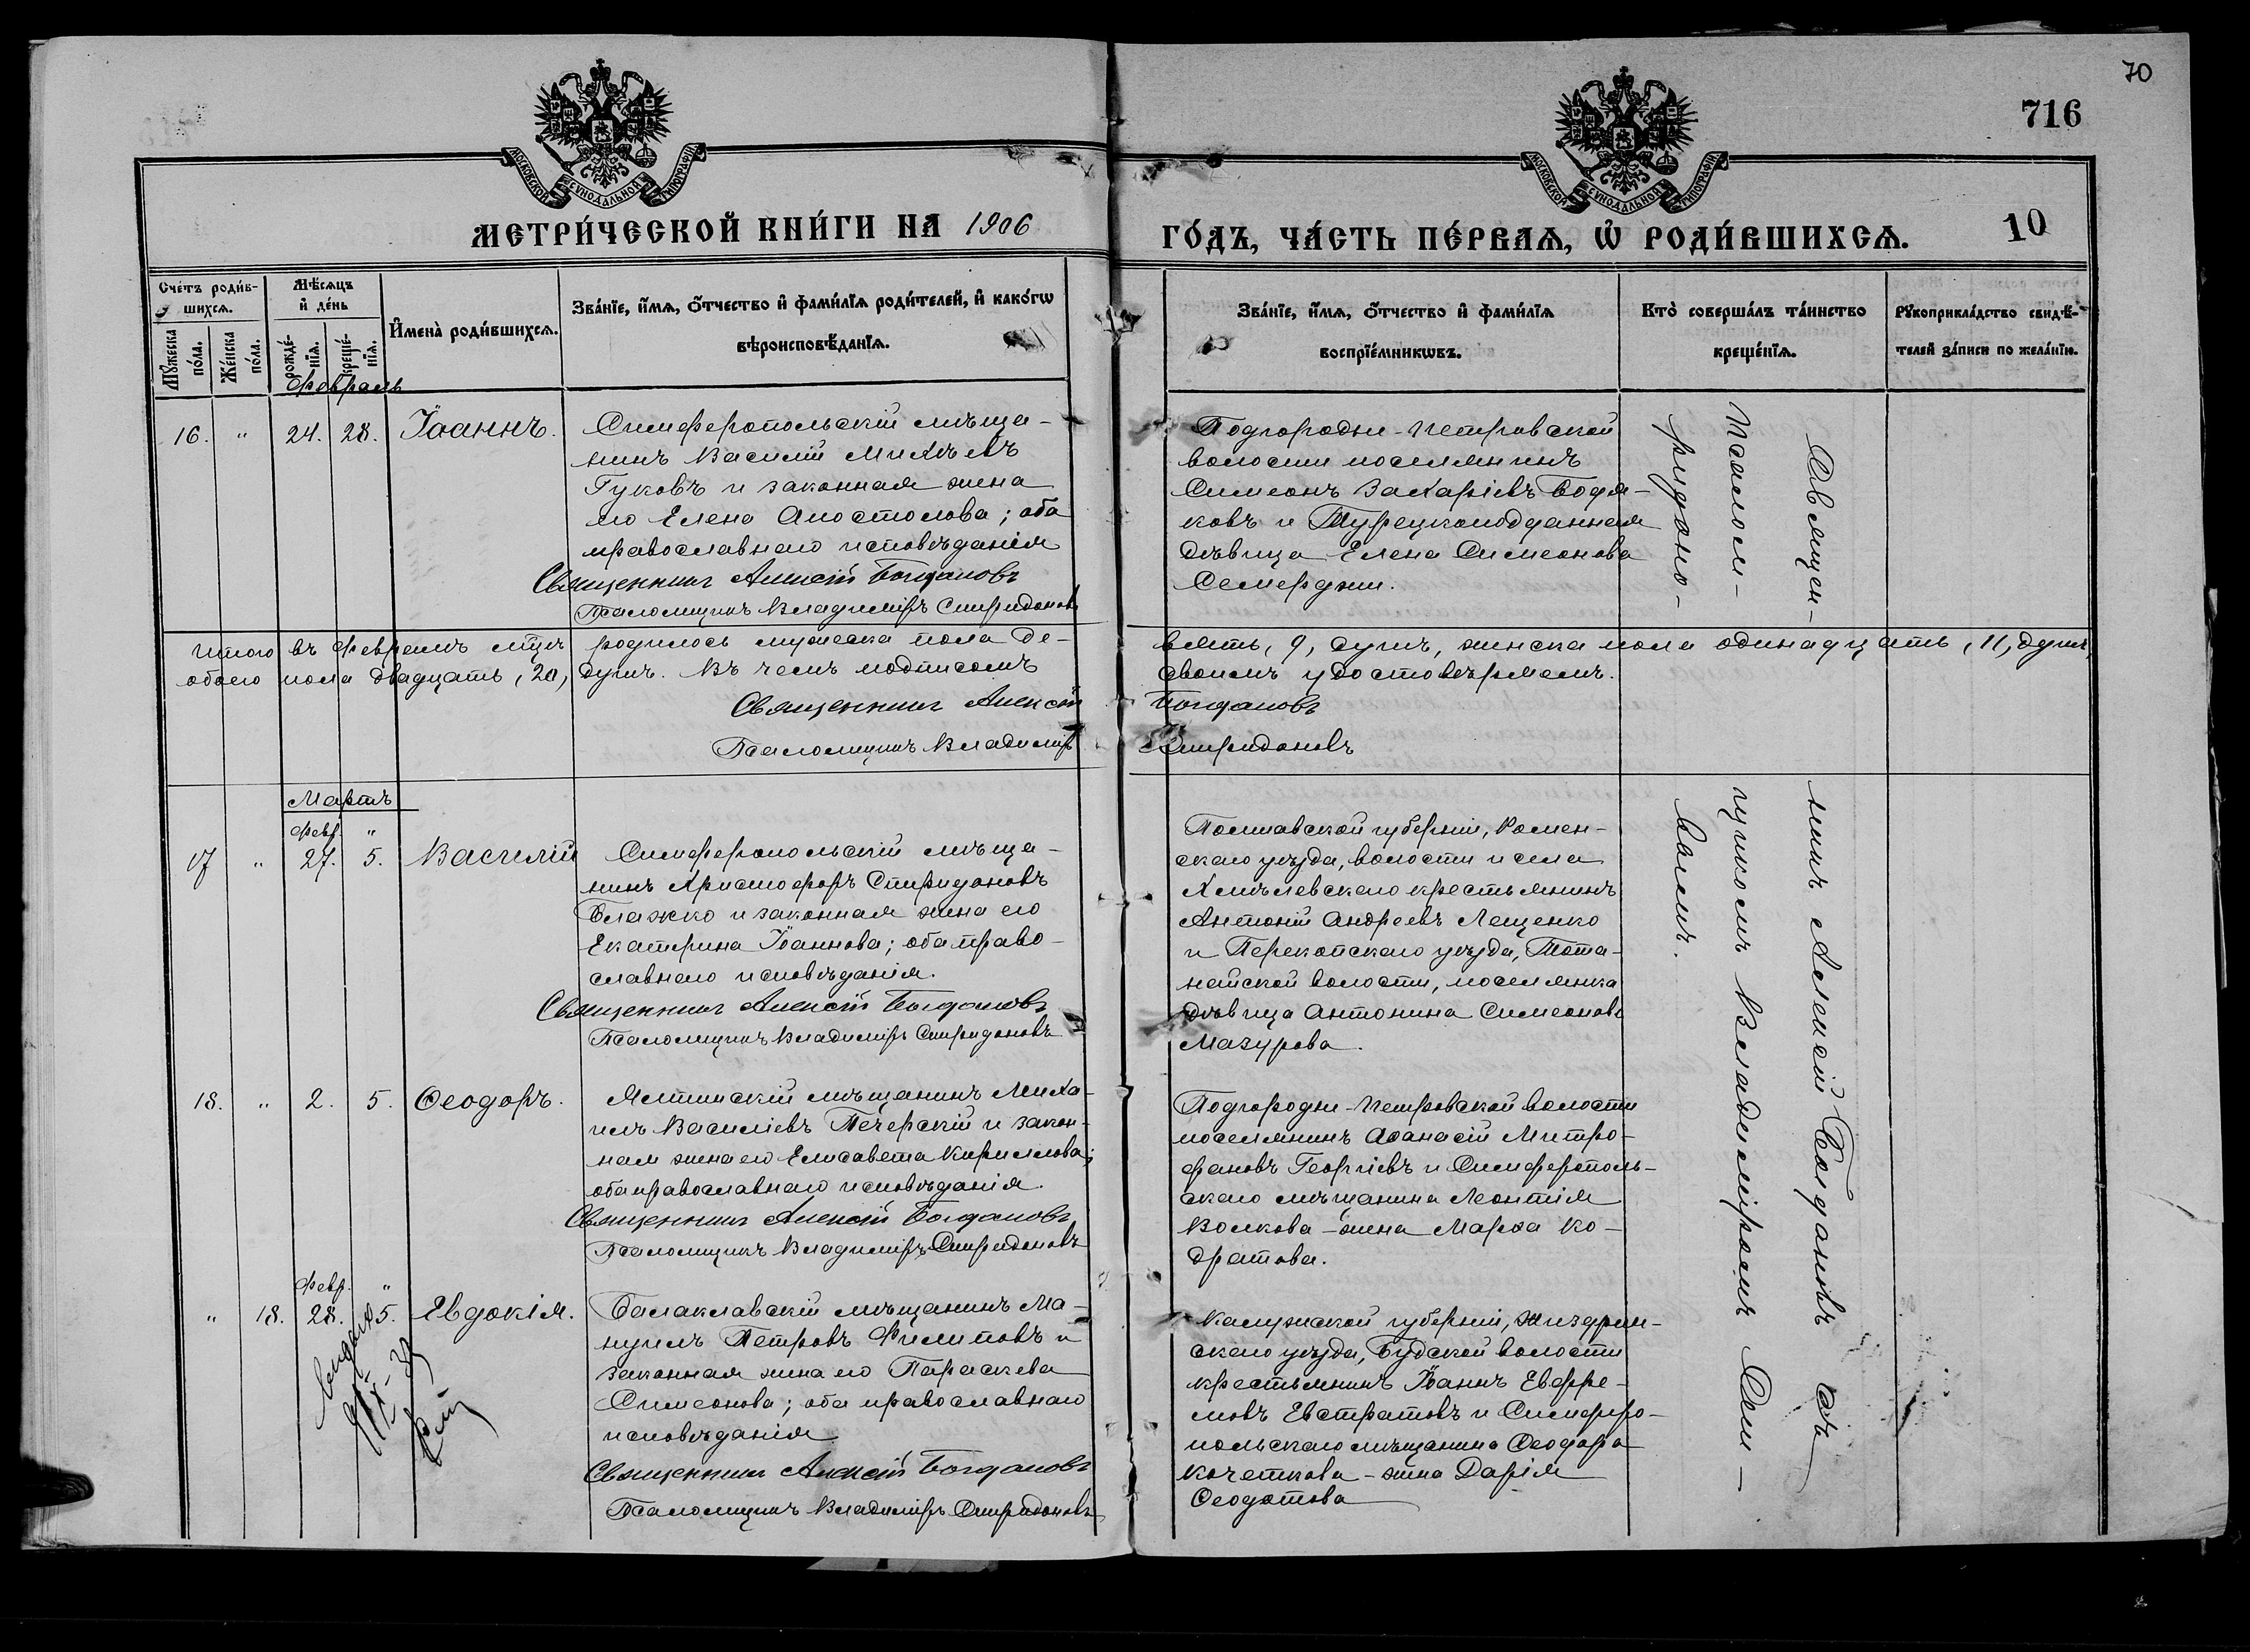 70
716
МОСКОВСКОЙ СѴНОДАЛЬНОЙ ТИПОГРАФІИ
МОСКОВСКОЙ СѴНОДАЛЬНОЙ ТИПОГРАФІИ
МЕТРИ́ЧЕСКОЙ КНИ́ГИ НА 1906
ГО́ДЪ, ЧА́СТЬ ПЕ́РВАѦ, Ѡ РОДИ́ВШИХСѦ.
10
Сче́тъ роди́в-
шихсѧ.
Мꙋ́жеска
по́ла.
Же́нска
по́ла.
Мѣ́сѧцъ
и҆ де́нь
рожде́-
нїѧ.
креще́-
нїѧ.
И҆мена̀ роди́вшихсѧ.
Зва́нїе, и҆́мѧ, ѻ҆́тчество и҆ фами́лїѧ роди́телей, и҆ како́гѡ
вѣроисповѣ́данїѧ.
Зва́нїе, и҆́мѧ, ѻ҆́тчество и҆ фами́лїѧ
воспрїе́мникѡвъ.
Кто̀ соверша́лъ та́инство
креще́нїѧ.
Рꙋкоприкла́дство свидѣ́-
телей за́писи по жела́нїю.
Февраль
16. " 24. 28. Іоаннъ.
Симферопольскій мѣща-
нинъ Василій Михѣевъ
Гуковъ и законная жена
его Елена Апостолова; оба
православнаго исповѣданія
Священникъ Алексій Богдановъ
Псаломщикъ Владиміръ Спиридоновъ
Подгородне-Петровской
волости поселянинъ
Симеонъ Захаріевъ Бодя-
ковъ и Турецкоподданная
дѣвица Елена Симеонова
Семерджи.
Итого въ Февралѣ мцѣ родилось мужеска пола де-
вять, 9, душъ, женска пола одинадцать, 11, душъ,
обоего пола двадцать, 20, душъ. Въ чемъ подписомъ
своимъ удостовѣряемъ.
Священникъ Алексій
Богдановъ
Псаломщикъ Владиміръ
Спиридоновъ
Мартъ
Февр. "
17 " 27. 5. Василій
Симферопольскій мѣща-
нинъ Христофоръ Спиридоновъ
Блажко и законная жена его
Екатерина Іоаннова; оба право-
славнаго исповѣданія.
Священникъ Алексій Богдановъ
Псаломщикъ Владиміръ Спиридоновъ
Полтавской губерніи, Ромен-
скаго уѣзда, волости и села
Хмѣлевскаго крестьянинъ
Антоній Андреевъ Лещенко
и Перекопскаго уѣзда, Тота-
найской волости, поселянка
дѣвица Антонина Симеонова
Мазурова.
18. " 2. 5. Ѳеодоръ.
Ялтинскій мѣщанинъ Миха-
илъ Василіевъ Печерскій и закон-
ная жена его Елисавета Кириллова;
оба православнаго исповѣданія.
Священникъ Алексій Богдановъ
Псаломщикъ Владиміръ Спиридоновъ
Подгородне-Петровской волости
поселянинъ Аѳанасій Митро-
фановъ Георгіевъ и Симферополь-
скаго мѣщанина Леонтія
Волкова - жена Марѳа Ко-
дратова.
Февр. "
" 18. 28. 5. Евдокія.
Балаклавскій мѣщанинъ Ма-
нуилъ Петровъ Филиповъ и
законная жена его Параскева
Симеонова; оба православнаго
исповѣданія
Священникъ Алексій Богдановъ
Псаломщикъ Владиміръ Спиридоновъ
Калужской губерніи, Жиздрин-
скаго уѣзда, Будской волости
крестьянинъ Іоаннъ Евфре-
мовъ Евстратовъ и Симферо-
польскаго мѣщанина Ѳеодора
Кочеткова - жена Дарія
Ѳеодотова
Священ-
никъ Алексій Богдановъ съ
Псалом-
щикомъ Владиміромъ Спи-
ридоно-
вымъ.